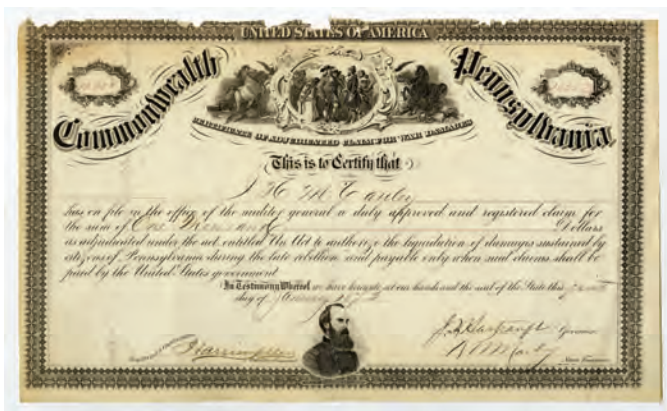 UNITED STATES OF AMERICA
Commonwealth Pennsylvania
CERTIFICATE OF ADJUDICATED CLAIM FOR WAR DAMAGES
This is to Certify that
has on file in the office of the auditor general a duly approved and registered claim for
the sum of One Dollars
as adjudicated under the act entitled An Act to authorize the liquidation of damages sustained by
citizens of Pennsylvania during the late rebellion and payable only when said claims shall be
paid by the United States government
In Testimony Whereof we have hereunto set our hands and the seal of the State this
day of
Governor